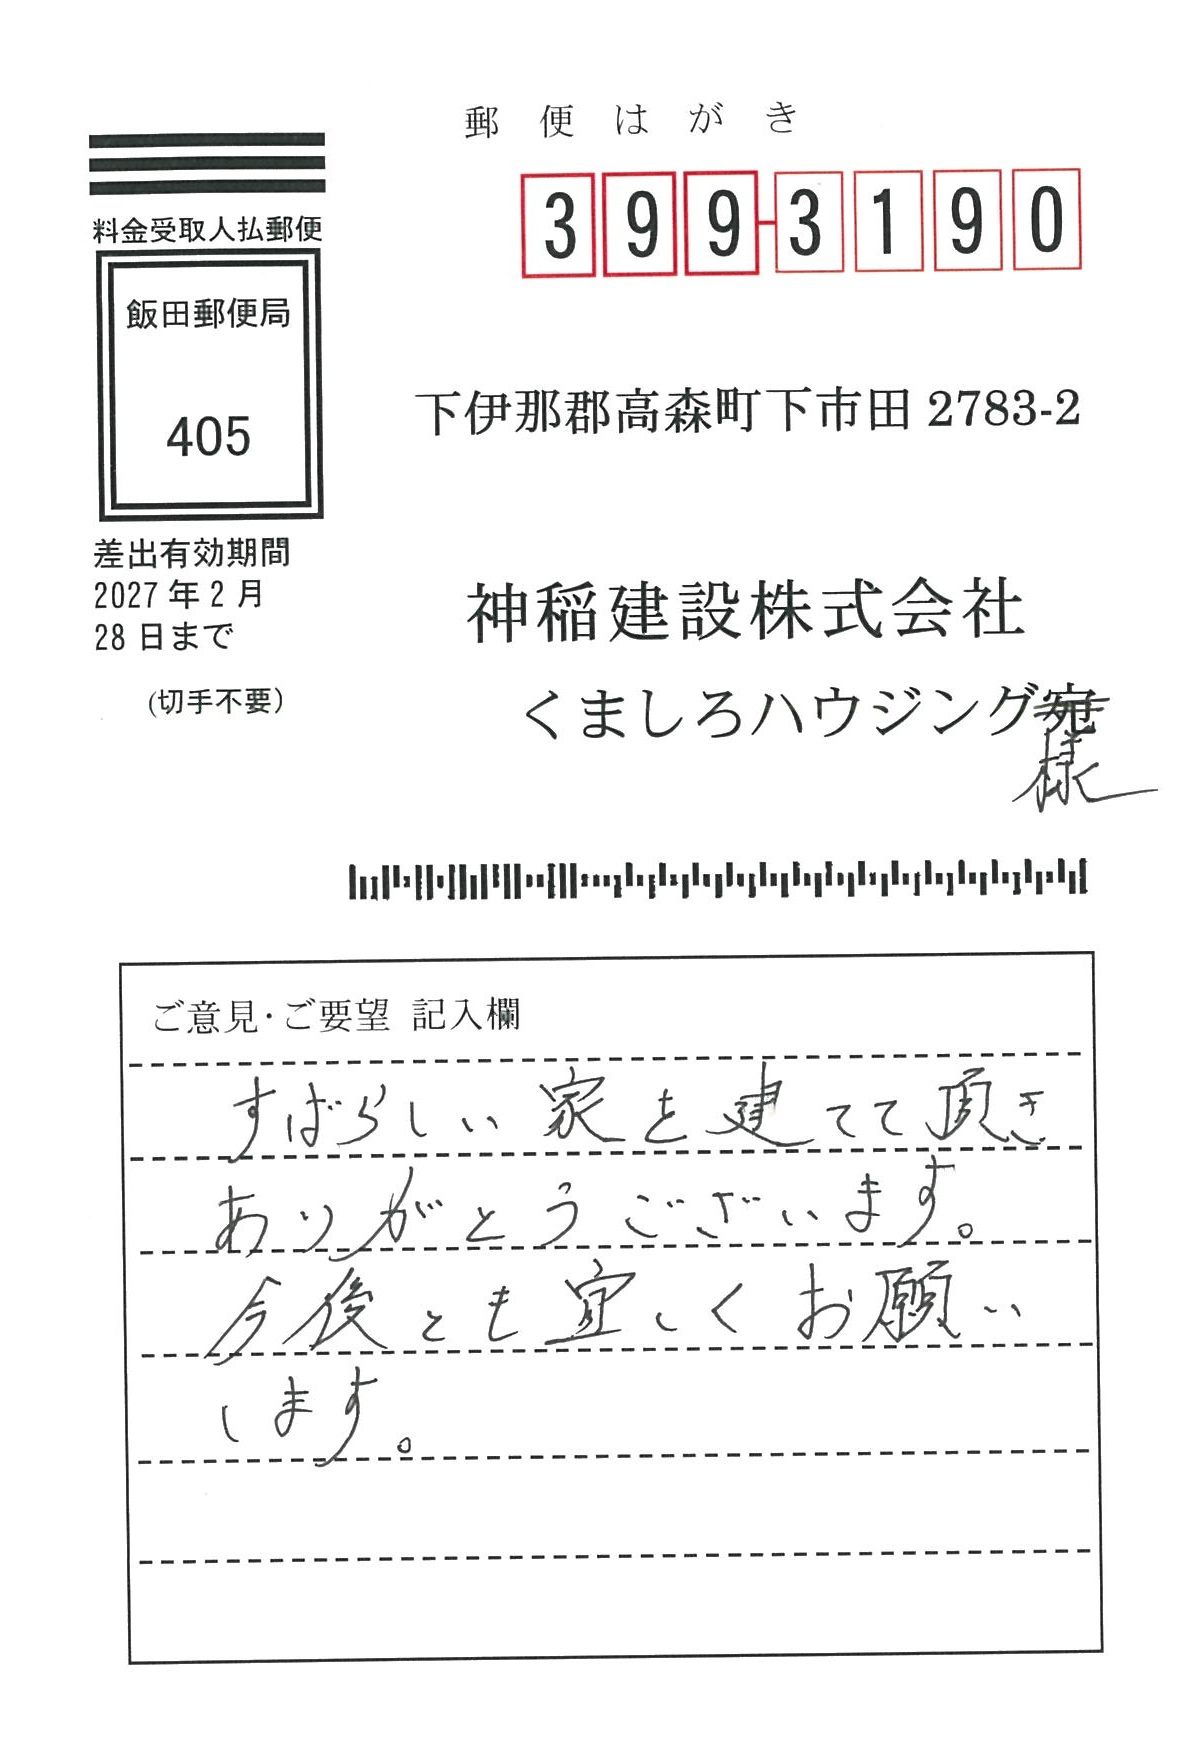 郵便はがき
399-3190
料金受取人払郵便
飯田郵便局
405
差出有効期間
2027年2月
28日まで
(切手不要)
下伊那郡高森町下市田2783-2
神稲建設株式会社
くましろハウジング宛
様
ご意見・ご要望 記入欄
すばらしい家を建てて頂き
ありがとうございます。
今後とも宜しくお願い
します。